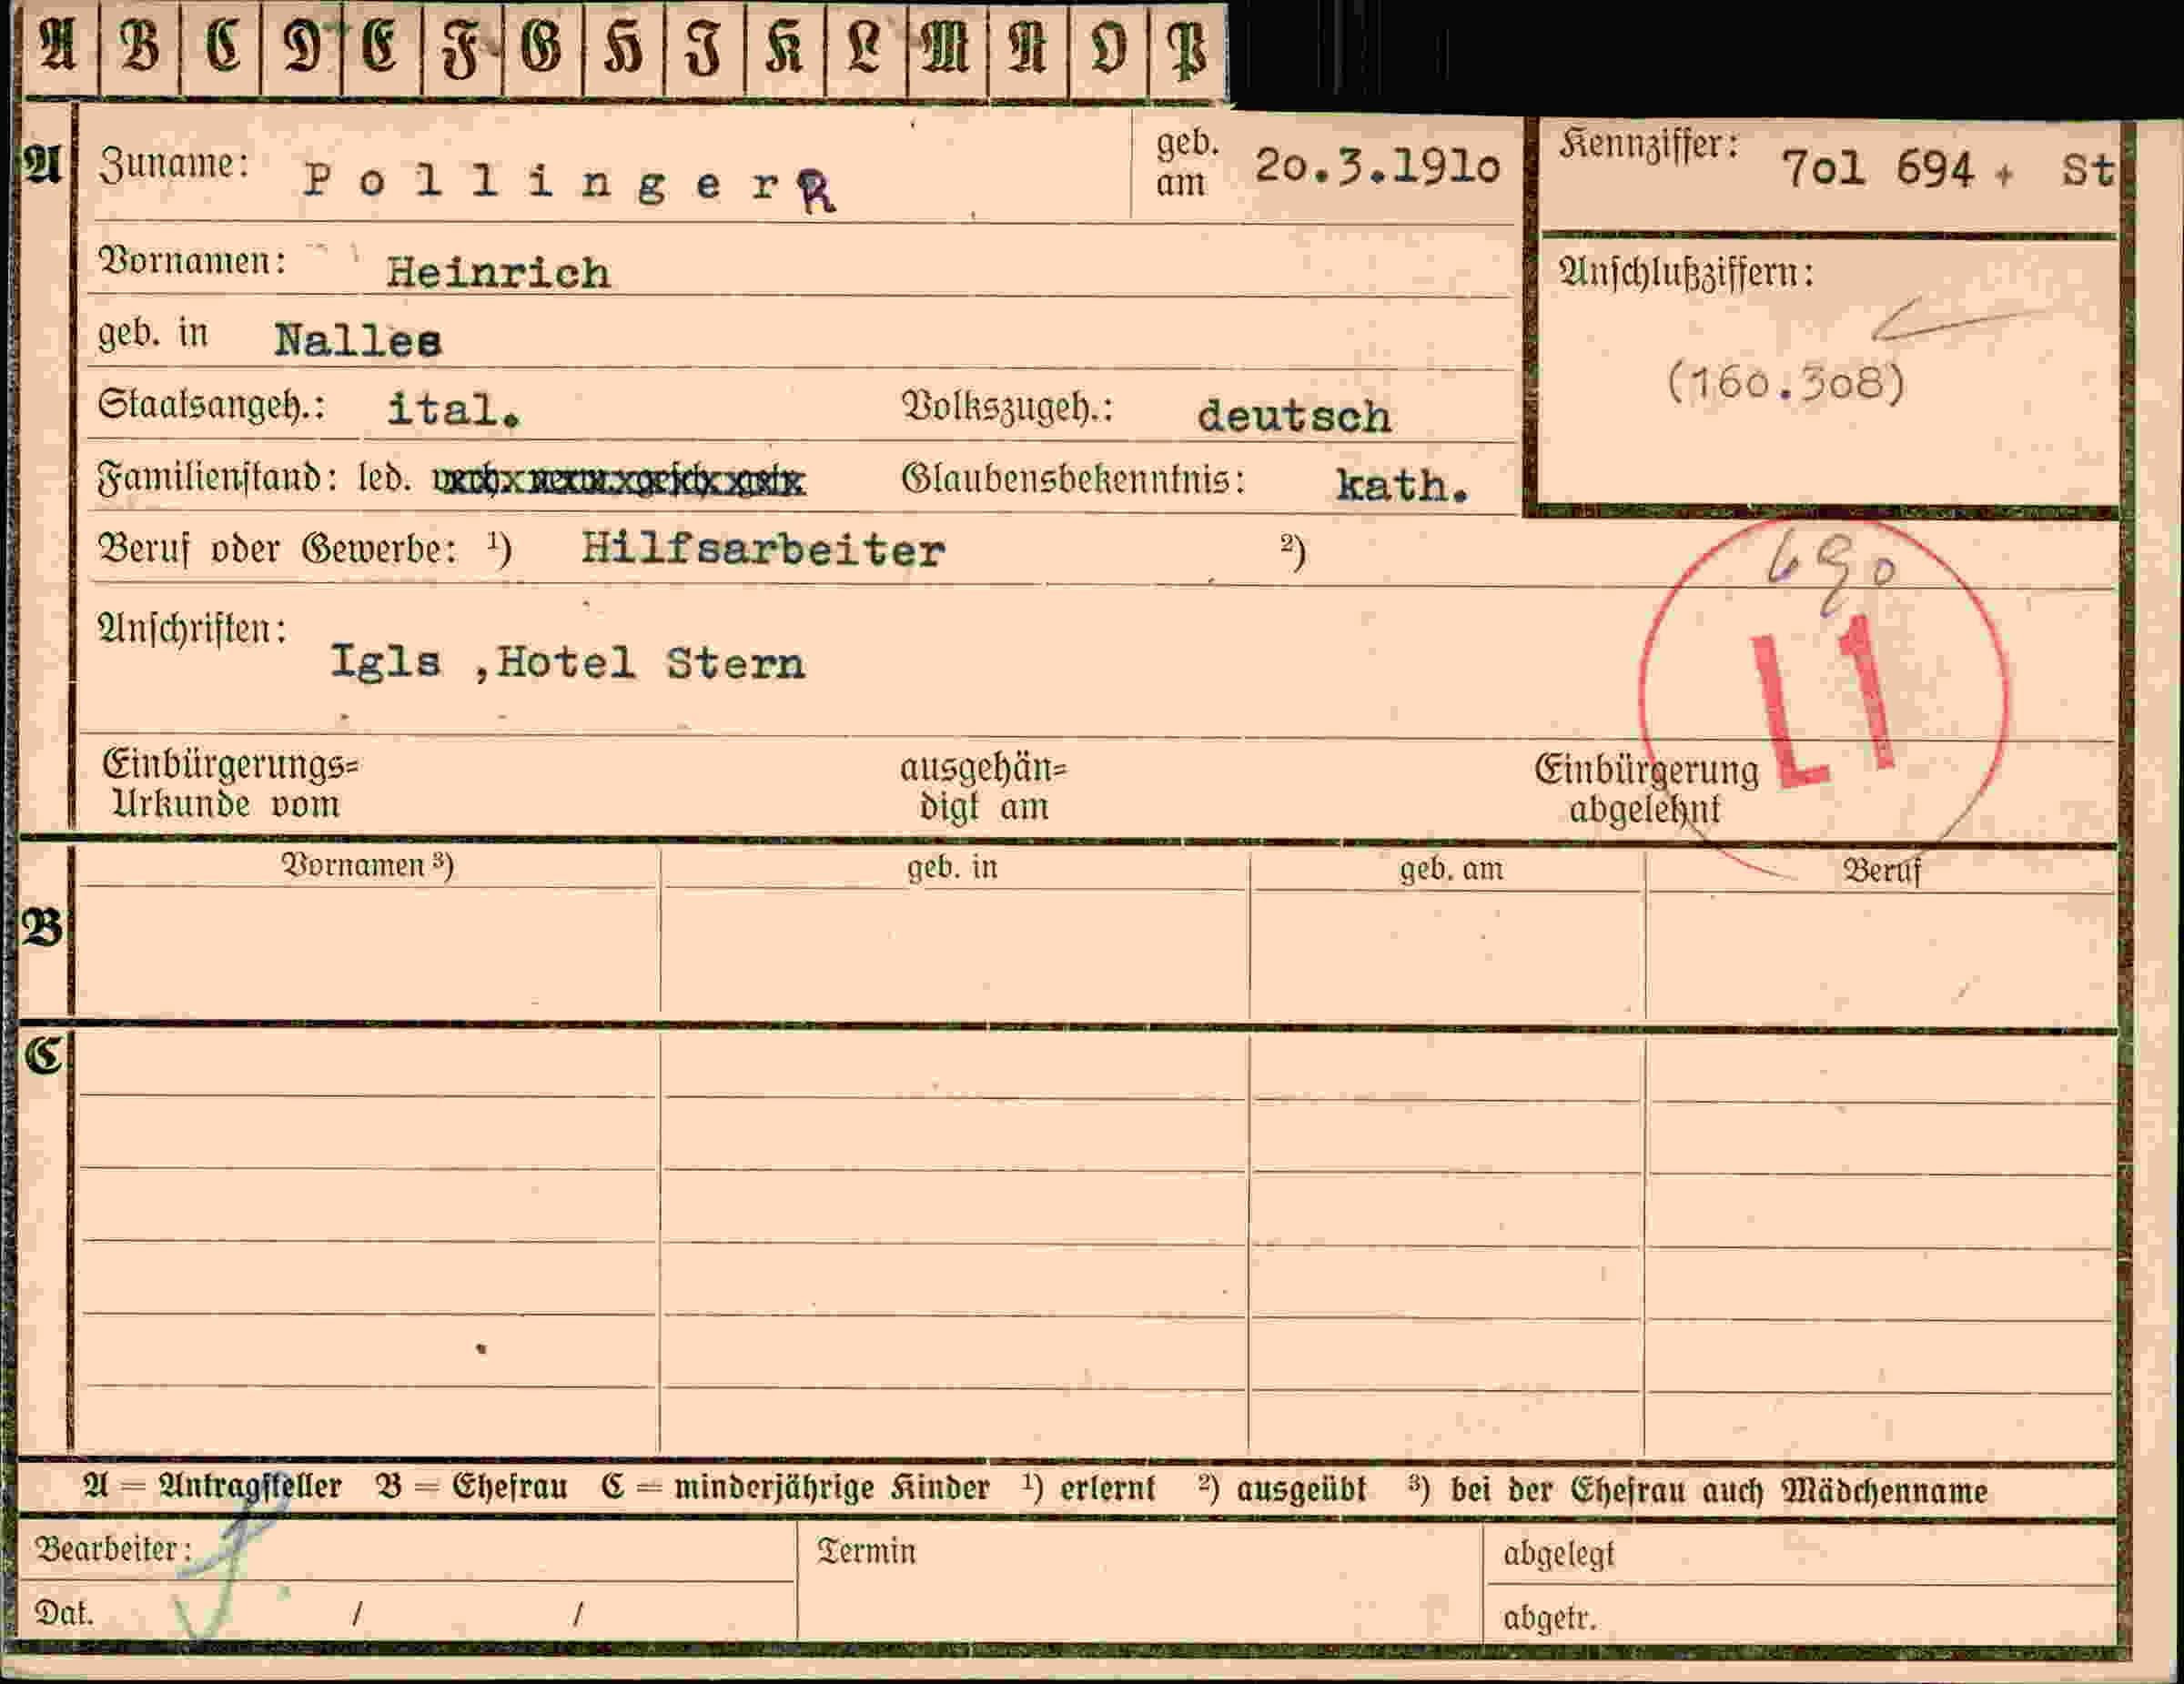 A B C D E F G H I K L M N O P
A Zuname: Pollinger R geb. am 2o.3.191o Kennziffer: 7o1 694 + St
Vornamen: Heinrich Anschlußziffern:
geb. in Nalles (160.308)
Staatsangeh.: ital. Volkszugeh.: deutsch
Familienstand: led. Glaubensbekenntnis: kath.
Beruf oder Gewerbe: ¹) Hilfsarbeiter ²) 690
Anschriften: L1
Igls ,Hotel Stern
Einbürgerungs= ausgehän= Einbürgerung
Urkunde vom digt am abgelehnt
Vornamen ³) geb. in geb. am Beruf
B
C
A = Antragsteller B = Ehefrau C = minderjährige Kinder ¹) erlernt ²) ausgeübt ³) bei der Ehefrau auch Mädchenname
Bearbeiter: Termin abgelegt
Dat. / / abgetr.